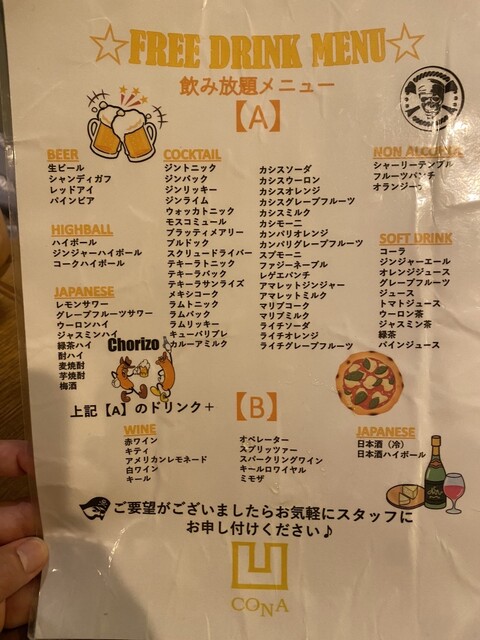 ☆FREE DRINK MENU☆
飲み放題メニュー
【A】
BEER
生ビール
シャンディガフ
レッドアイ
パインビア
HIGHBALL
ハイボール
ジンジャーハイボール
コークハイボール
JAPANESE
レモンサワー
グレープフルーツサワー
ウーロンハイ
ジャスミンハイ
緑茶ハイ
酎ハイ
麦焼酎
芋焼酎
梅酒
COCKTAIL
ジントニック
ジンバック
ジンリッキー
ジンライム
ウォッカトニック
モスコミュール
ブラッティメアリー
ブルドック
スクリュードライバー
テキーラトニック
テキーラバック
テキーラサンライズ
メキシコーク
ラムトニック
ラムバック
ラムリッキー
キューバリブレ
カルーアミルク
カシスソーダ
カシスウーロン
カシスオレンジ
カシスグレープフルーツ
カシスミルク
カシモーニ
カンパリオレンジ
カンパリグレープフルーツ
スプモーニ
ファジーネーブル
レゲエパンチ
アマレットジンジャー
アマレットミルク
マリブコーク
マリブミルク
ライチソーダ
ライチオレンジ
ライチグレープフルーツ
NON ALCOHOL
シャーリーテンプル
フルーツパンチ
オランジーナ
SOFT DRINK
コーラ
ジンジャーエール
オレンジジュース
グレープフルーツ
ジュース
トマトジュース
ウーロン茶
ジャスミン茶
緑茶
パインジュース
Chorizo
上記【A】のドリンク＋
【B】
WINE
赤ワイン
キティ
アメリカンレモネード
白ワイン
キール
オペレーター
スプリッツァー
スパークリングワイン
キールロワイヤル
ミモザ
JAPANESE
日本酒（冷）
日本酒ハイボール
ご要望がございましたらお気軽にスタッフに
お申し付けください♪
CONA